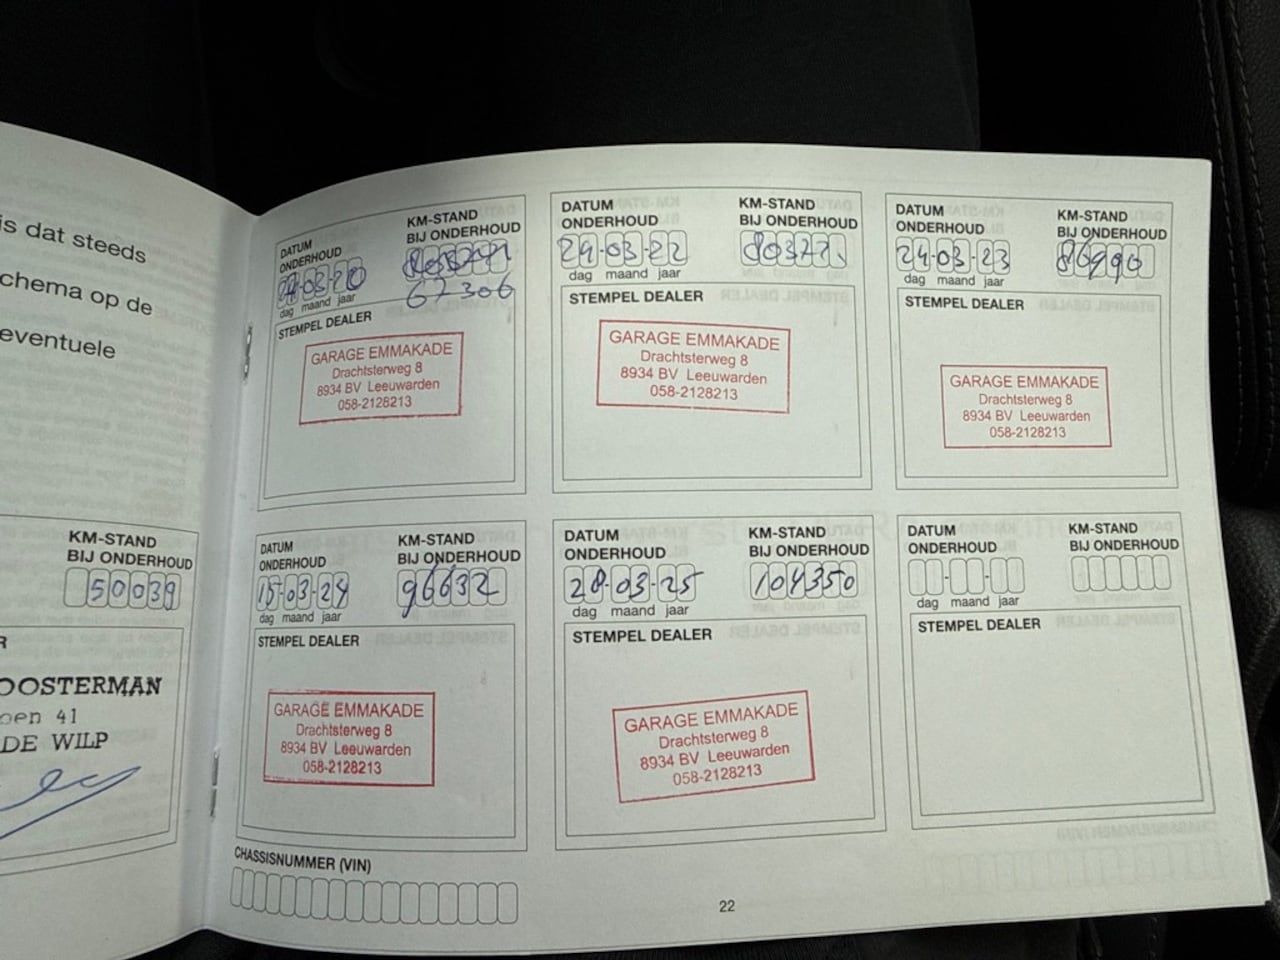 is dat steeds
chema op de
eventuele
KM-STAND
BIJ ONDERHOUD
50039
R
OOSTERMAN
oen 41
DE WILP
DATUM
ONDERHOUD
KM-STAND
BIJ ONDERHOUD
04-03-20
67306
dag maand jaar
STEMPEL DEALER
GARAGE EMMAKADE
Drachtsterweg 8
8934 BV Leeuwarden
058-2128213
DATUM
ONDERHOUD
KM-STAND
BIJ ONDERHOUD
24-03-22
80372
dag maand jaar
STEMPEL DEALER
GARAGE EMMAKADE
Drachtsterweg 8
8934 BV Leeuwarden
058-2128213
DATUM
ONDERHOUD
KM-STAND
BIJ ONDERHOUD
24-03-23
86990
dag maand jaar
STEMPEL DEALER
GARAGE EMMAKADE
Drachtsterweg 8
8934 BV Leeuwarden
058-2128213
DATUM
ONDERHOUD
KM-STAND
BIJ ONDERHOUD
15-03-24
96632
dag maand jaar
STEMPEL DEALER
GARAGE EMMAKADE
Drachtsterweg 8
8934 BV Leeuwarden
058-2128213
DATUM
ONDERHOUD
KM-STAND
BIJ ONDERHOUD
28-03-25
104350
dag maand jaar
STEMPEL DEALER
GARAGE EMMAKADE
Drachtsterweg 8
8934 BV Leeuwarden
058-2128213
DATUM
ONDERHOUD
KM-STAND
BIJ ONDERHOUD
dag maand jaar
STEMPEL DEALER
CHASSISNUMMER (VIN)
22